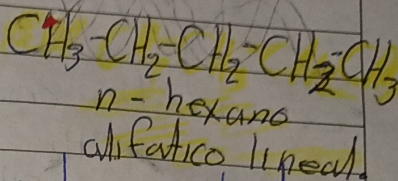 CH3-CH2-CH2-CH2-CH3
n-hexano
alifatico lineal.